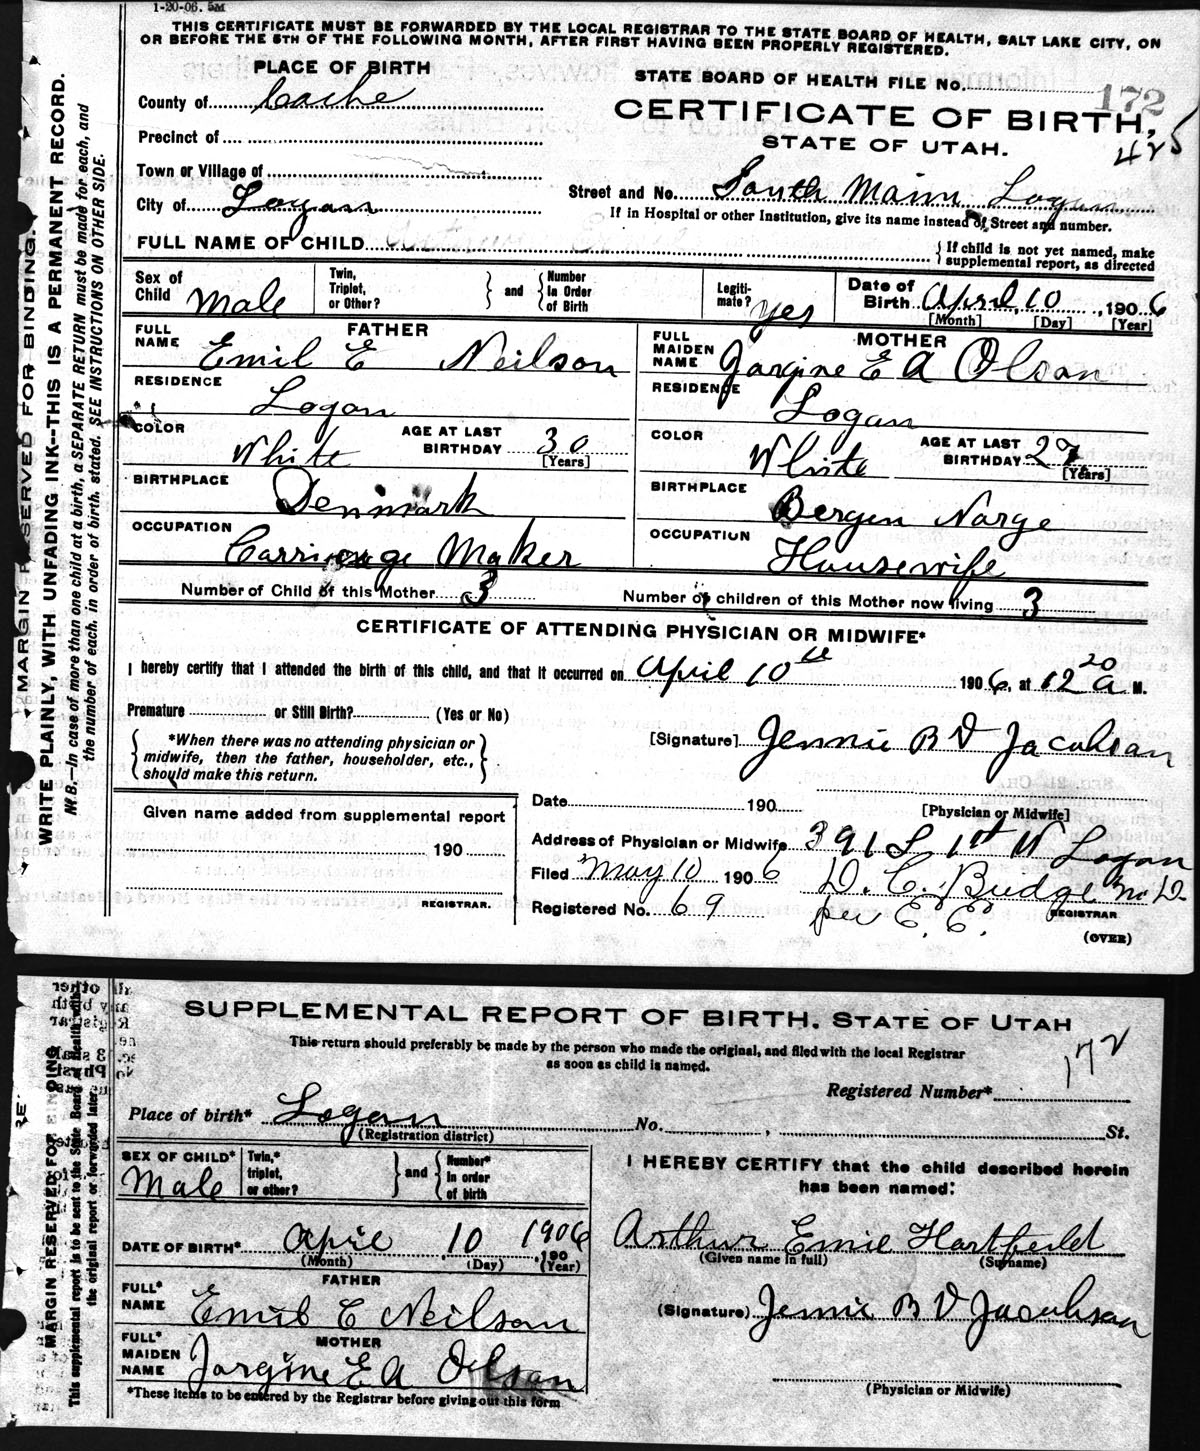 1-20-06. 5M
THIS CERTIFICATE MUST BE FORWARDED BY THE LOCAL REGISTRAR TO THE STATE BOARD OF HEALTH, SALT LAKE CITY, ON
OR BEFORE THE 5TH OF THE FOLLOWING MONTH, AFTER FIRST HAVING BEEN PROPERLY REGISTERED.
MARGIN RESERVED FOR BINDING.
WRITE PLAINLY, WITH UNFADING INK--THIS IS A PERMANENT RECORD.
N.B.—In case of more than one child at a birth, a SEPARATE RETURN must be made for each, and
the number of each, in order of birth, stated. SEE INSTRUCTIONS ON OTHER SIDE.
PLACE OF BIRTH
County of Cache
Precinct of
Town or Village of
City of Logan
STATE BOARD OF HEALTH FILE No. 172
CERTIFICATE OF BIRTH,
425
STATE OF UTAH.
Street and No. South Main Logan
If in Hospital or other Institution, give its name instead of Street and number.
FULL NAME OF CHILD
{ If child is not yet named, make
supplemental report, as directed
Sex of Child Male
Twin, Triplet, or Other? } and { Number In Order of Birth
Legiti-mate? yes
Date of Birth April 10, 1906
[Month] [Day] [Year]
FATHER
FULL NAME Emil E Neilson
RESIDENCE Logan
COLOR White AGE AT LAST BIRTHDAY 30 [Years]
BIRTHPLACE Denmark
OCCUPATION Carriage Maker
MOTHER
FULL MAIDEN NAME Jorgine E A Olson
RESIDENCE Logan
COLOR White AGE AT LAST BIRTHDAY 27 [Years]
BIRTHPLACE Bergen Norge
OCCUPATION Housewife
Number of Child of this Mother 3 Number of children of this Mother now living 3
CERTIFICATE OF ATTENDING PHYSICIAN OR MIDWIFE*
I hereby certify that I attended the birth of this child, and that it occurred on April 10th 1906, at 12 20 a M.
Premature or Still Birth? (Yes or No)
{ *When there was no attending physician or
midwife, then the father, householder, etc.,
should make this return. }
[Signature] Jennie B V Jacobson
Date 190
[Physician or Midwife]
Given name added from supplemental report
190
REGISTRAR.
Address of Physician or Midwife 391 S 1st W Logan
Filed May 10 1906 D. C. Budge M.D.
Registered No. 69 per E. E. REGISTRAR
(OVER)
SUPPLEMENTAL REPORT OF BIRTH. STATE OF UTAH
This return should preferably be made by the person who made the original, and filed with the local Registrar
as soon as child is named.
MARGIN RESERVED FOR BINDING
This supplemental report is to be sent to the State Board of Health with
the original report or forwarded later.
Registered Number* 172
Place of birth* Logan No. , St.
(Registration district)
SEX OF CHILD* Male
Twin,* triplet, or other? } and { Number* In order of birth
DATE OF BIRTH* April 10 1906
(Month) (Day) 190 (Year)
FATHER
FULL* NAME Emil E Neilson
MOTHER
FULL* MAIDEN NAME Jorgine E A Olson
*These items to be entered by the Registrar before giving out this form
I HEREBY CERTIFY that the child described herein
has been named:
Arthur Emil Hartfield
(Given name in full) (Surname)
(Signature) Jennie B V Jacobson
(Physician or Midwife)